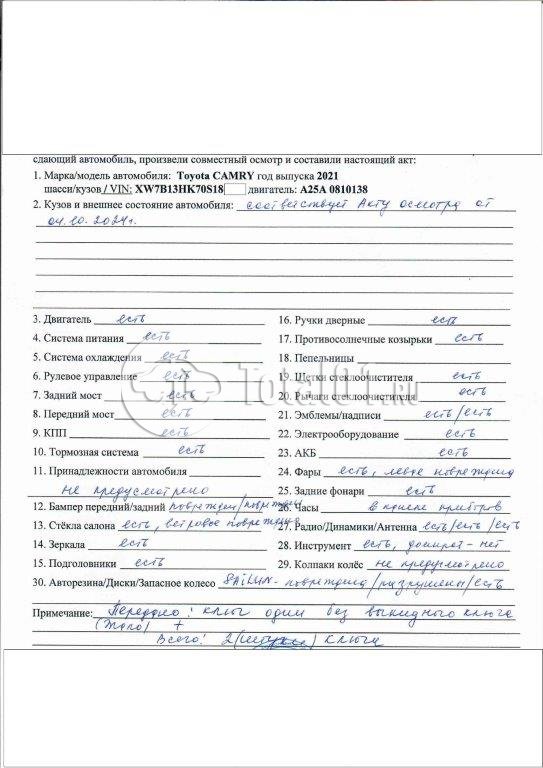 сдающий автомобиль, произвели совместный осмотр и составили настоящий акт:
1. Марка/модель автомобиля: Toyota CAMRY год выпуска 2021
шасси/кузов / VIN: XW7B13HK70S18 двигатель: A25A 0810138
2. Кузов и внешнее состояние автомобиля: соответствует Акту осмотра от
04.10.2024г.
3. Двигатель есть
4. Система питания есть
5. Система охлаждения есть
6. Рулевое управление есть
7. Задний мост есть
8. Передний мост есть
9. КПП есть
10. Тормозная система есть
11. Принадлежности автомобиля
не предусмотрено
12. Бампер передний/задний поврежден/поврежден
13. Стёкла салона есть, ветровое повреждено
14. Зеркала есть
15. Подголовники есть
16. Ручки дверные есть
17. Противосолнечные козырьки есть
18. Пепельницы
19. Щетки стеклоочистителя есть
20. Рычаги стеклоочистителя есть
21. Эмблемы/надписи есть/есть
22. Электрооборудование есть
23. АКБ есть
24. Фары есть, левая повреждена
25. Задние фонари есть
26. Часы в панели приборов
27. Радио/Динамики/Антенна есть/есть/есть
28. Инструмент есть, домкрат - нет
29. Колпаки колёс не предусмотрено
30. Авторезина/Диски/Запасное колесо SAILUN - повреждена/разрушены/есть
Примечание: Передано: ключ один без выкидного ключа
(жало) +
Всего: 2 ключа
Total01.RU